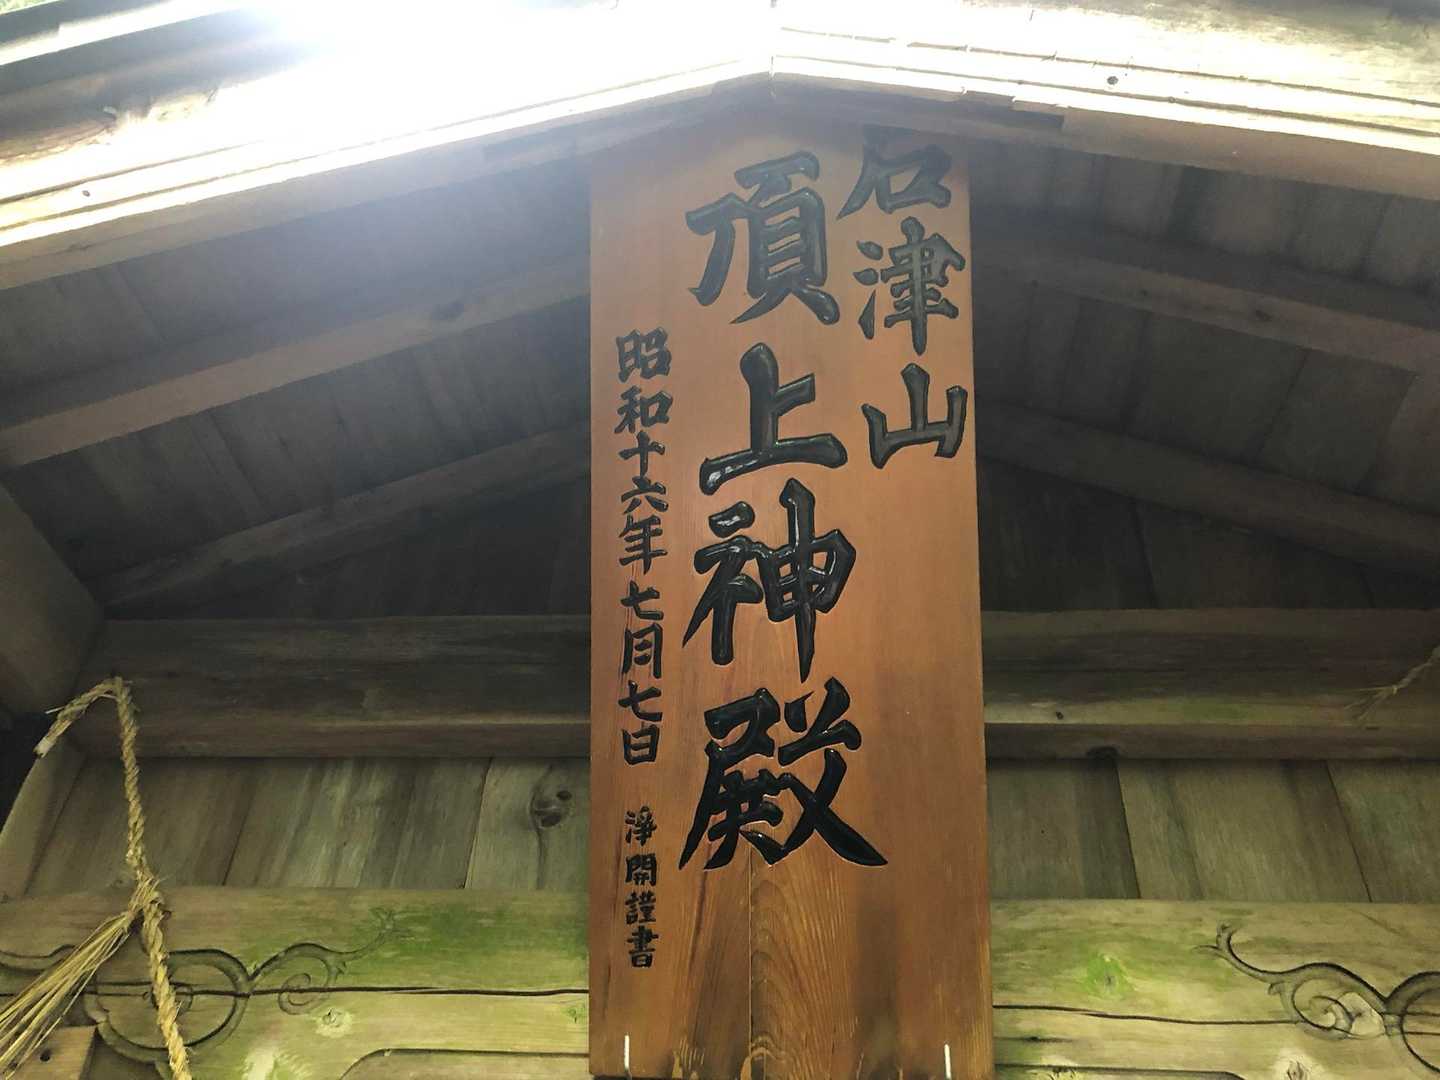 石津山
頂上神殿
昭和十六年七月七日 淨開謹書